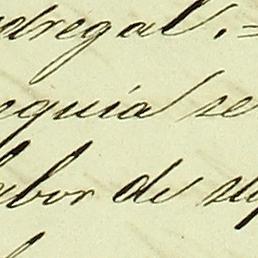 dregal.=
equia se
abor de su